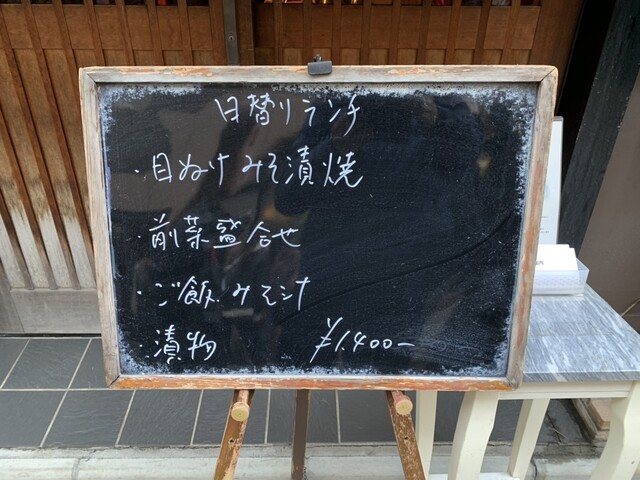 日替りランチ
・目ぬけみそ漬焼
・前菜盛合せ
・ご飯.みそ汁
・漬物 ¥1.400-